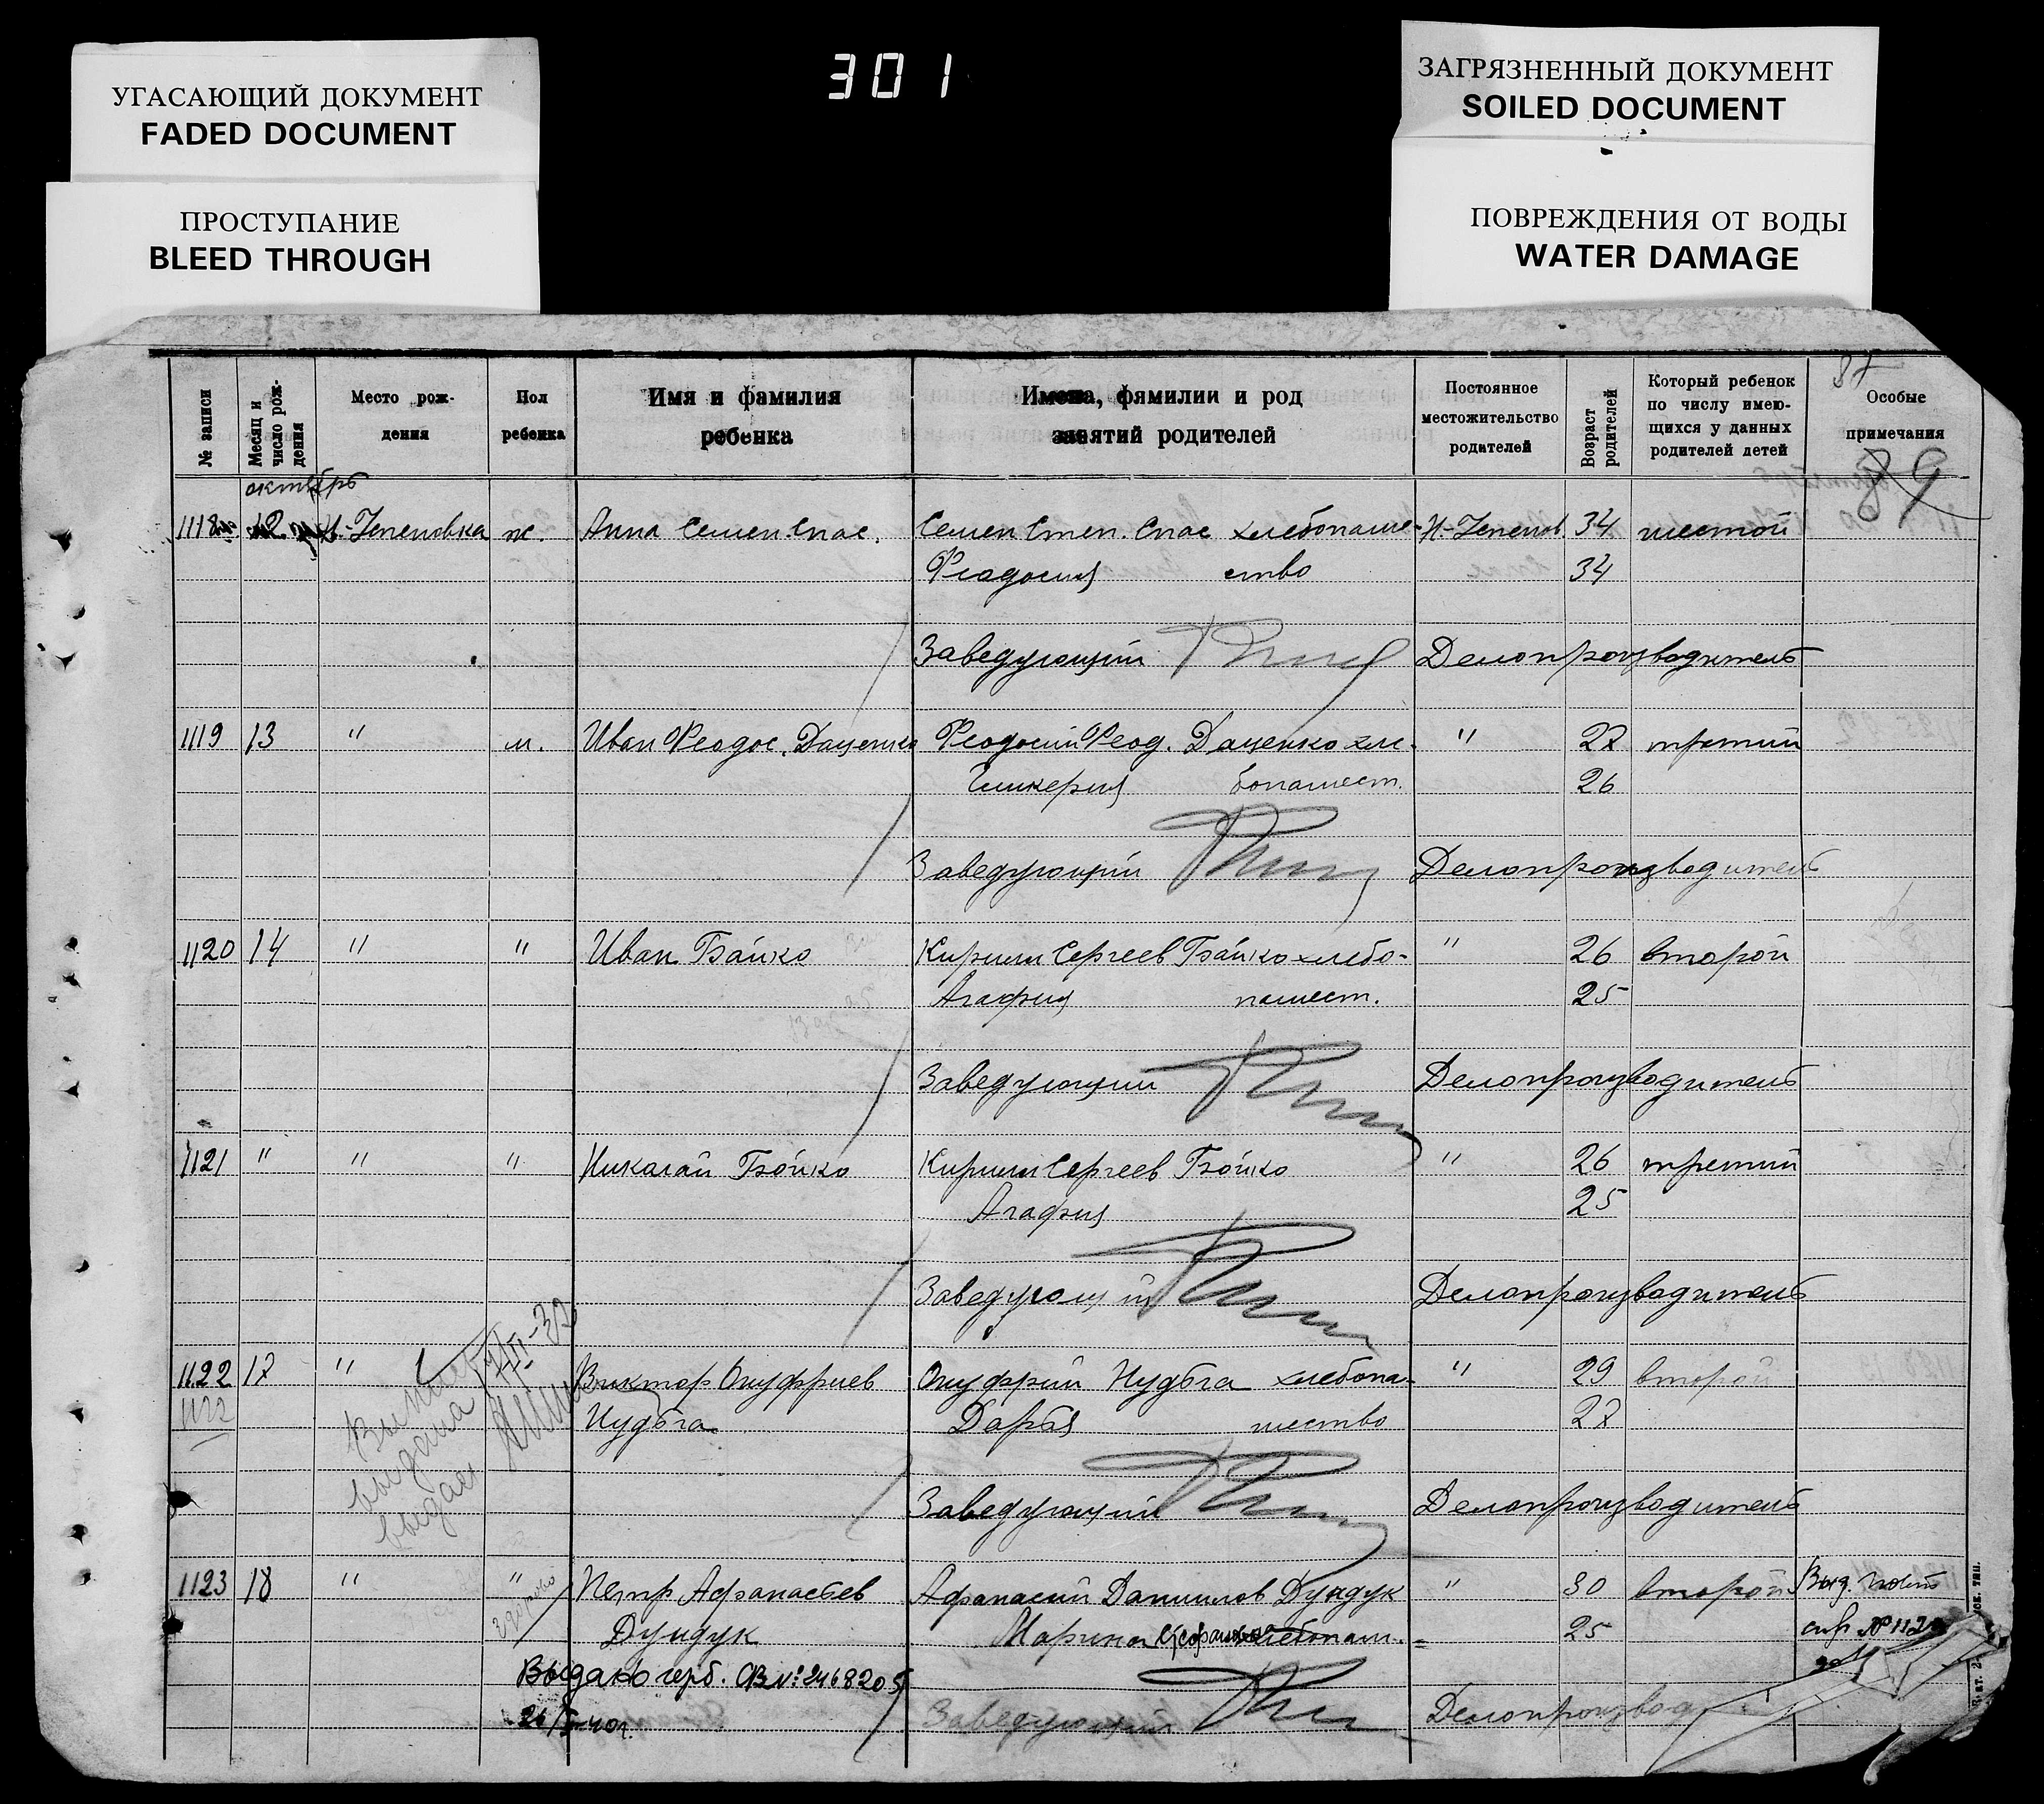 УГАСАЮЩИЙ ДОКУМЕНТ
FADED DOCUMENT
ПРОСТУПАНИЕ
BLEED THROUGH
301
ЗАГРЯЗНЕННЫЙ ДОКУМЕНТ
SOILED DOCUMENT
ПОВРЕЖДЕНИЯ ОТ ВОДЫ
WATER DAMAGE
87
№ записи
Месяц и число рож- дения
Место рож- дения
Пол ребенка
Имя и фамилия ребенка
Имена, фамилии и род занятий родителей
Постоянное местожительство родителей
Возраст родителей
Который ребенок по числу имею- щихся у данных родителей детей
Особые примечания
89
октябрь
1118 12 ж. Анна Семен. Спас. Семен Степ. Спас хлебопаше- 34 шестой
Феодосия ство 34
Заведующий Делопроизводитель
1119 13 " м. Иван Феодос. Даценко Феодосий Феод. Даценко хле- " 27 третий
Гликерия бопашест. 26
Заведующий Делопроизводитель
1120 14 " " Иван Бойко Кирилл Сергеев Бойко хлебо- " 26 второй
Агафия пашест. 25
Заведующий Делопроизводитель
1121 " " " Николай Бойко Кирилл Сергеев Бойко " 26 третий
Агафия 25
Заведующий Делопроизводитель
1122 17 " " Виктор Онуфриев Онуфрий Нудьга хлебопа- " 29 второй
1122 Нудьга Дарья шество 27
Выпись
выдана
Заведующий Делопроизводитель
1123 18 " " Петр Афанасьев Афанасий Даниилов Дундук " 30 второй Выд.
Дундук Марина хлебопаш. = 25
Выдано герб. СВ №: 2468205
26/ 40г. Заведующий Делопроизвод